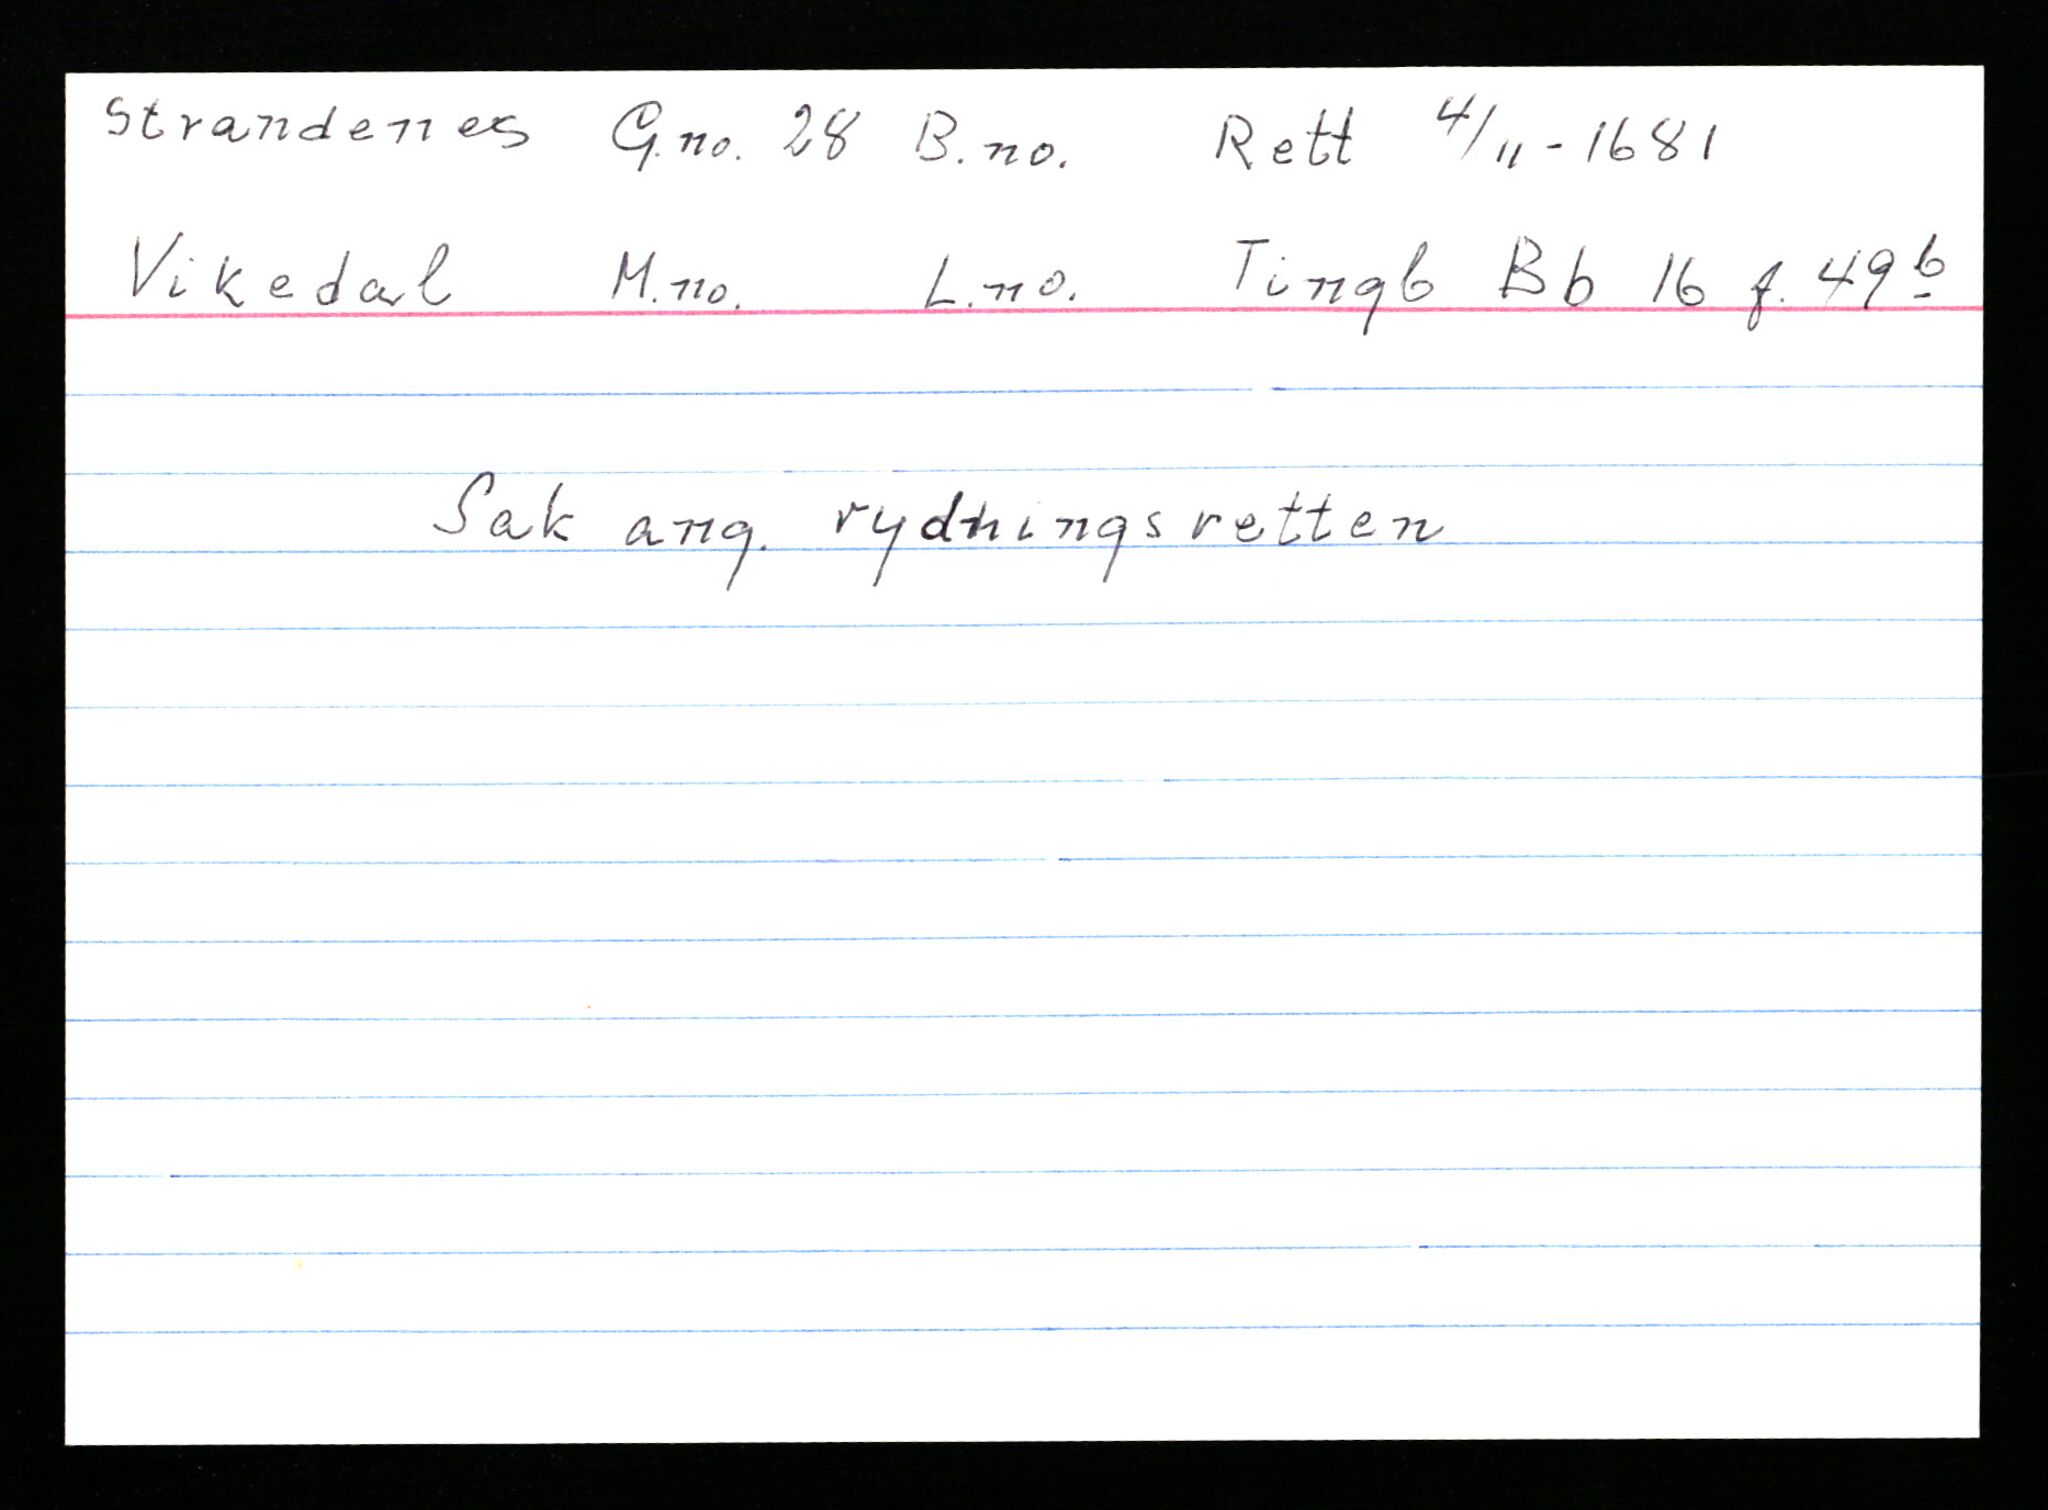 Strandenes G.no. 28 B.no. Rett 4/11-1681
Vikedal M.no. L.no. Tingb Bb 16 f. 49b
Sak ang. rydningsretten